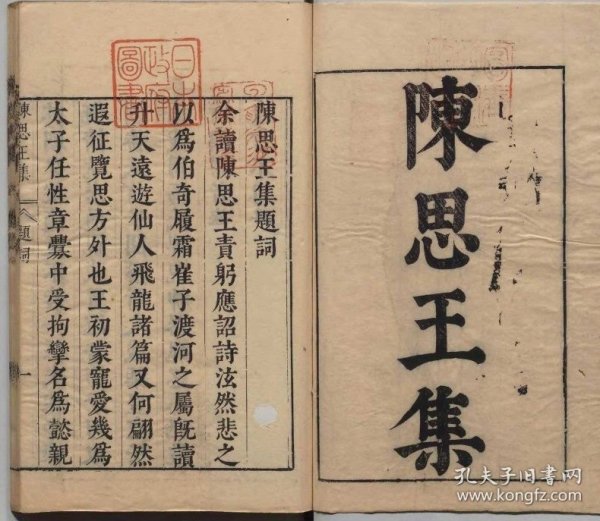 陳思王集
陳思王集題詞
余讀陳思王責躬應詔詩泫然悲之
以爲伯奇履霜崔子渡河之屬旣讀
升天遠遊仙人飛龍諸篇又何翩然
遐征覽思方外也王初蒙寵愛幾爲
太子任性章釁中受拘攣名爲懿親
陳思王集
題詞
一
日本
政府
圖書
孔夫子旧书网
www.kongfz.com